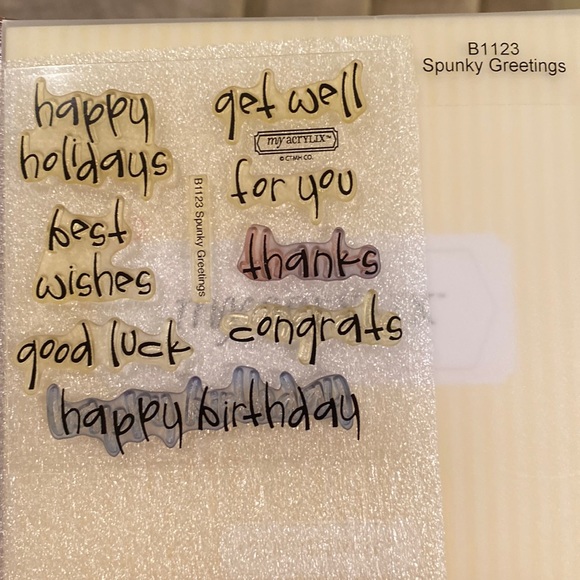 B1123
Spunky Greetings
happy
holidays
get well
my acrylix™
© CTMH CO.
for you
B1123 Spunky Greetings
best
wishes
thanks
good luck
congrats
happy birthday